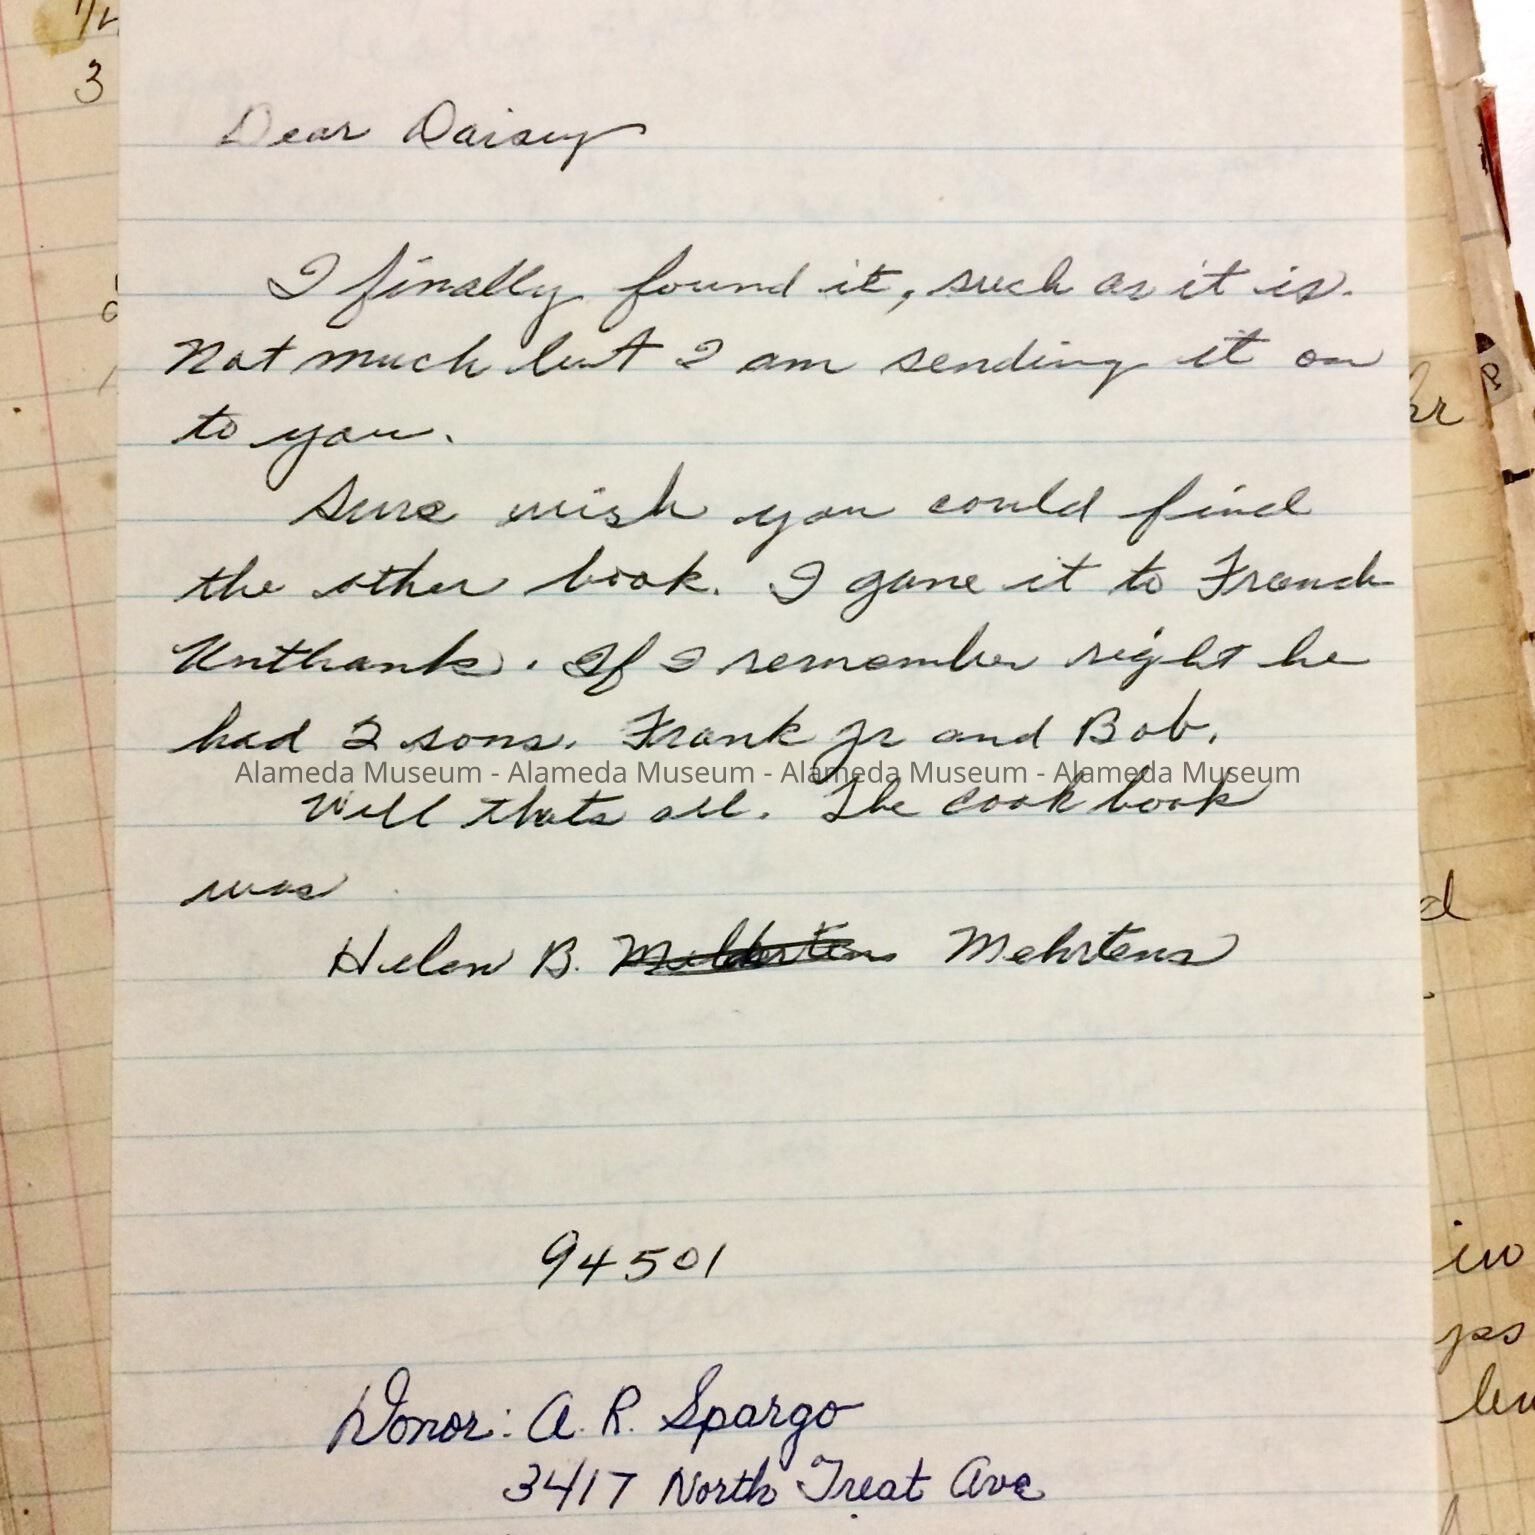 Dear Daisey
I finally found it, such as it is.
Not much but I am sending it on
to you.
Sure wish you could find
the other book. I gave it to Frank
Unthank. If I remember right he
had 2 sons. Frank Jr and Bob.
Alameda Museum - Alameda Museum - Alameda Museum - Alameda Museum
Well thats all. The cook book
was
Helen B. Mehrtens
94501
Donor: A. R. Spargo
3417 North Treat Ave